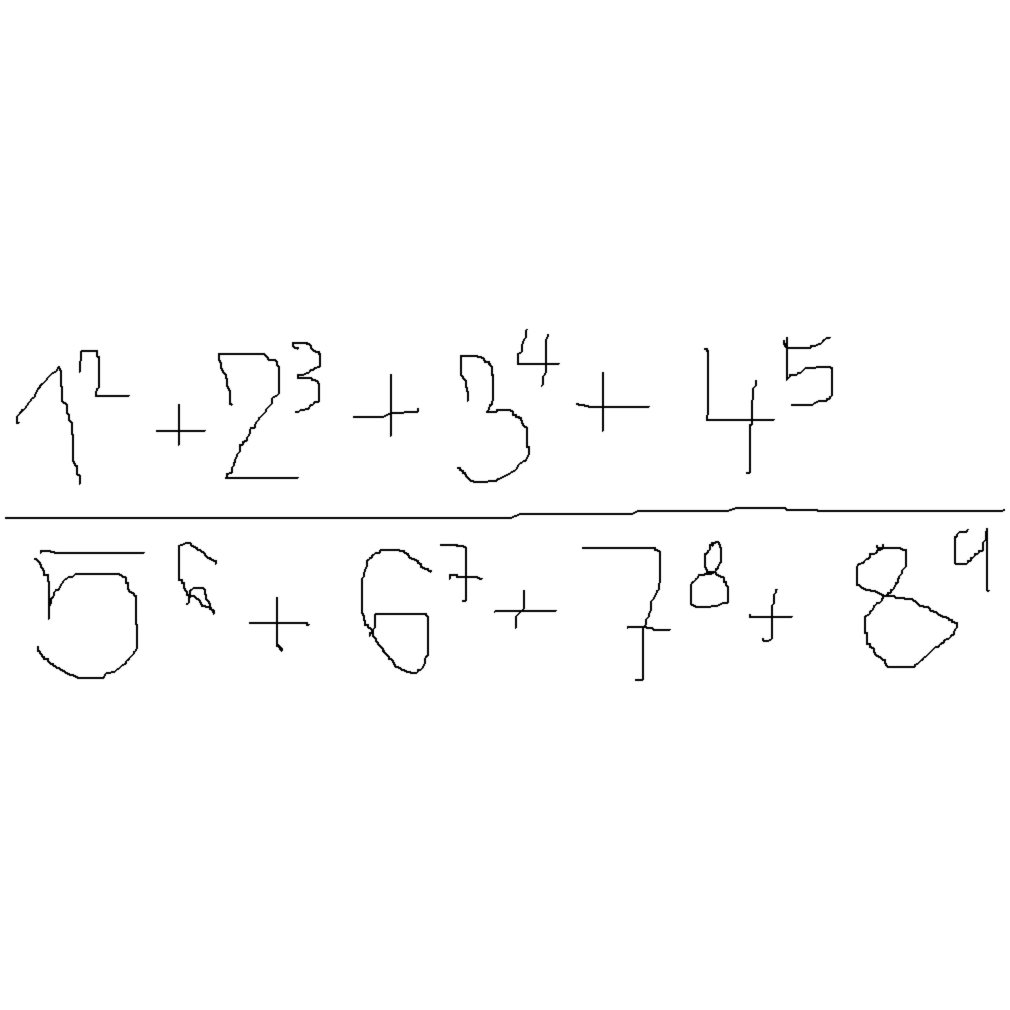 1² + 2³ + 3⁴ + 4⁵
5⁶ + 6⁷ + 7⁸ + 8⁹